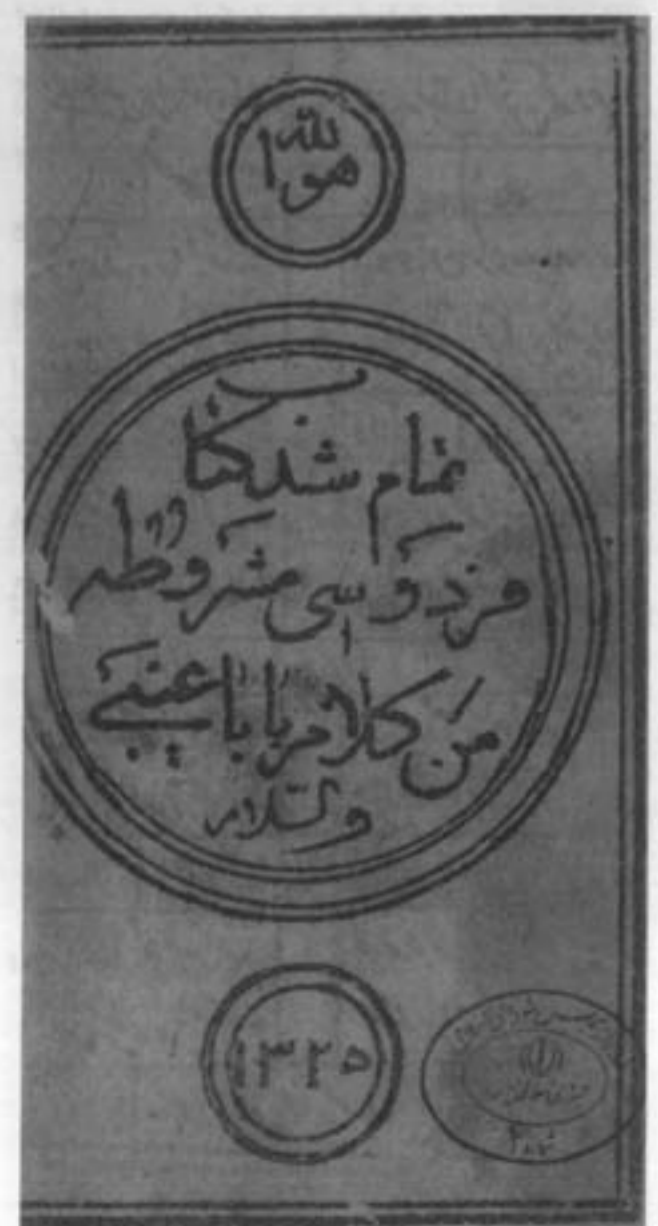 هوالله
تمام شد کتاب
فردوسی مشروطه
من کلام بابا غیبی
والسلام
۱۳۲۵